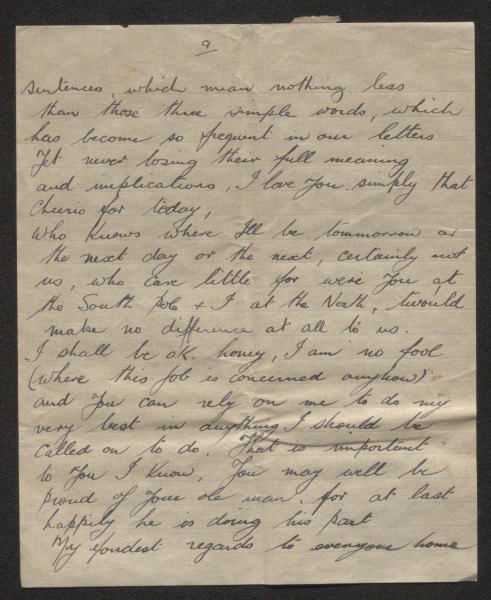 9
sentences, which mean nothing less
than those three simple words, which
has become so frequent in our letters
Yet never losing their full meaning
and implications, I love You. simply that
Cheerio for today,
Who knows where I'll be tommorrow or
the next day or the next, certainly not
us, who care little for were You at
the South Pole + I at the North, twould
make no difference at all to us.
I shall be ok honey, I am no fool
(where this job is concerned anyhow)
and You can rely on me to do my
very best in anything I should be
called on to do. That is important
to You I know, You may well be
proud of Your ole man, for at last
happily he is doing his part
My fondest regards to everyone home